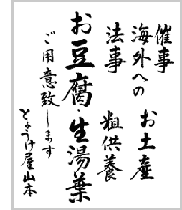 催事
海外への お土産
法事 粗供養
お豆腐・生湯葉
ご用意致します
とようけ屋山本